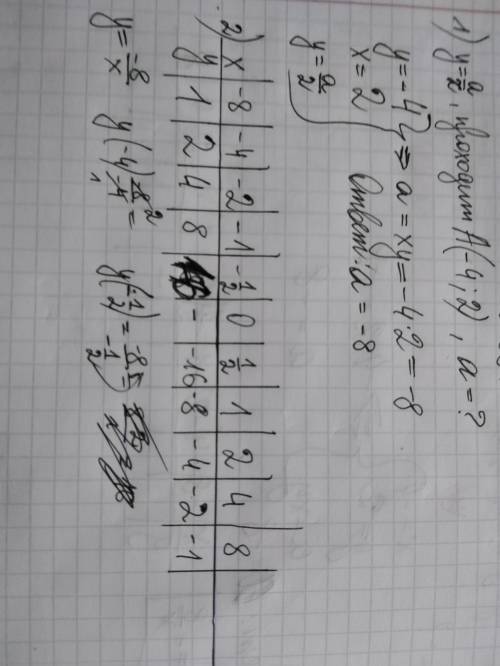 1) y = a/x, проходит A(-4; 2), a = ?
y = -4 } => a = xy = -4·2 = -8
x = 2
y = a/2 Ответ: a = -8
2) x | -8 | -4 | -2 | -1 | -1/2 | 0 | 1/2 | 1 | 2 | 4 | 8
y | 1 | 2 | 4 | 8 | 16 | - | -16 | -8 | -4 | -2 | -1
y = -8/x y(-4) = -8/-4 = 2/1 y(-1/2) = -8/(-1/2) =